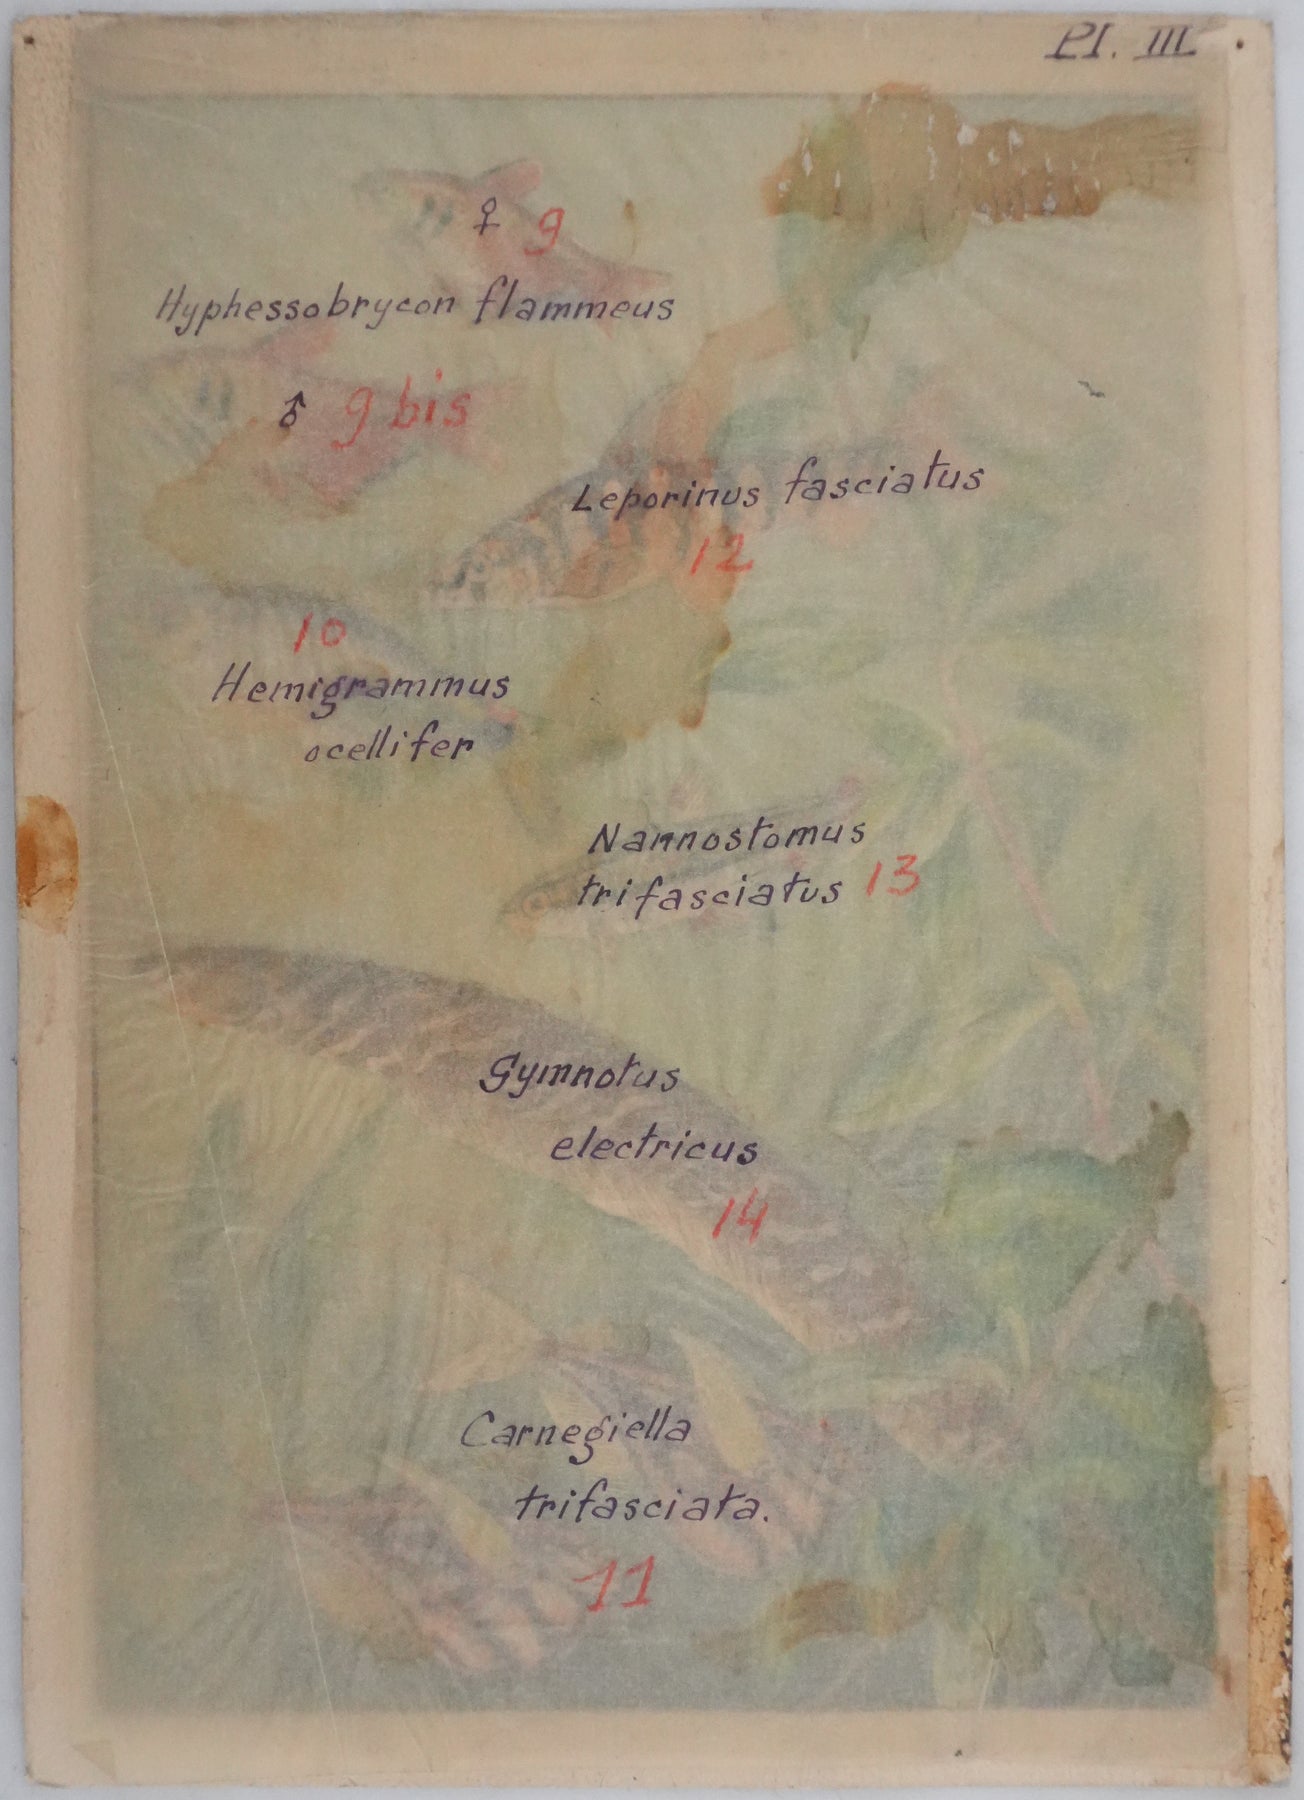 Pl. III
♀ 9
Hyphessobrycon flammeus
♂ 9 bis
Leporinus fasciatus
12
10
Hemigrammus
ocellifer
Nannostomus
trifasciatus 13
Gymnotus
electricus
14
Carnegiella
trifasciata.
11